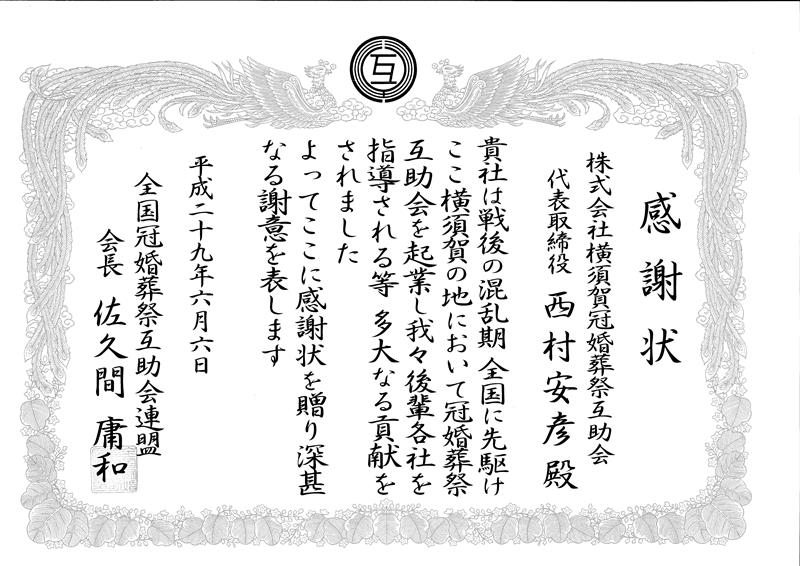 互
感謝状
株式会社横須賀冠婚葬祭互助会
代表取締役 西村安彦 殿
貴社は戦後の混乱期 全国に先駆け
ここ横須賀の地において冠婚葬祭
互助会を起業し我々後輩各社を
指導される等 多大なる貢献を
されました
よってここに感謝状を贈り深甚
なる謝意を表します
平成二十九年六月六日
全国冠婚葬祭互助会連盟
会長 佐久間 庸和